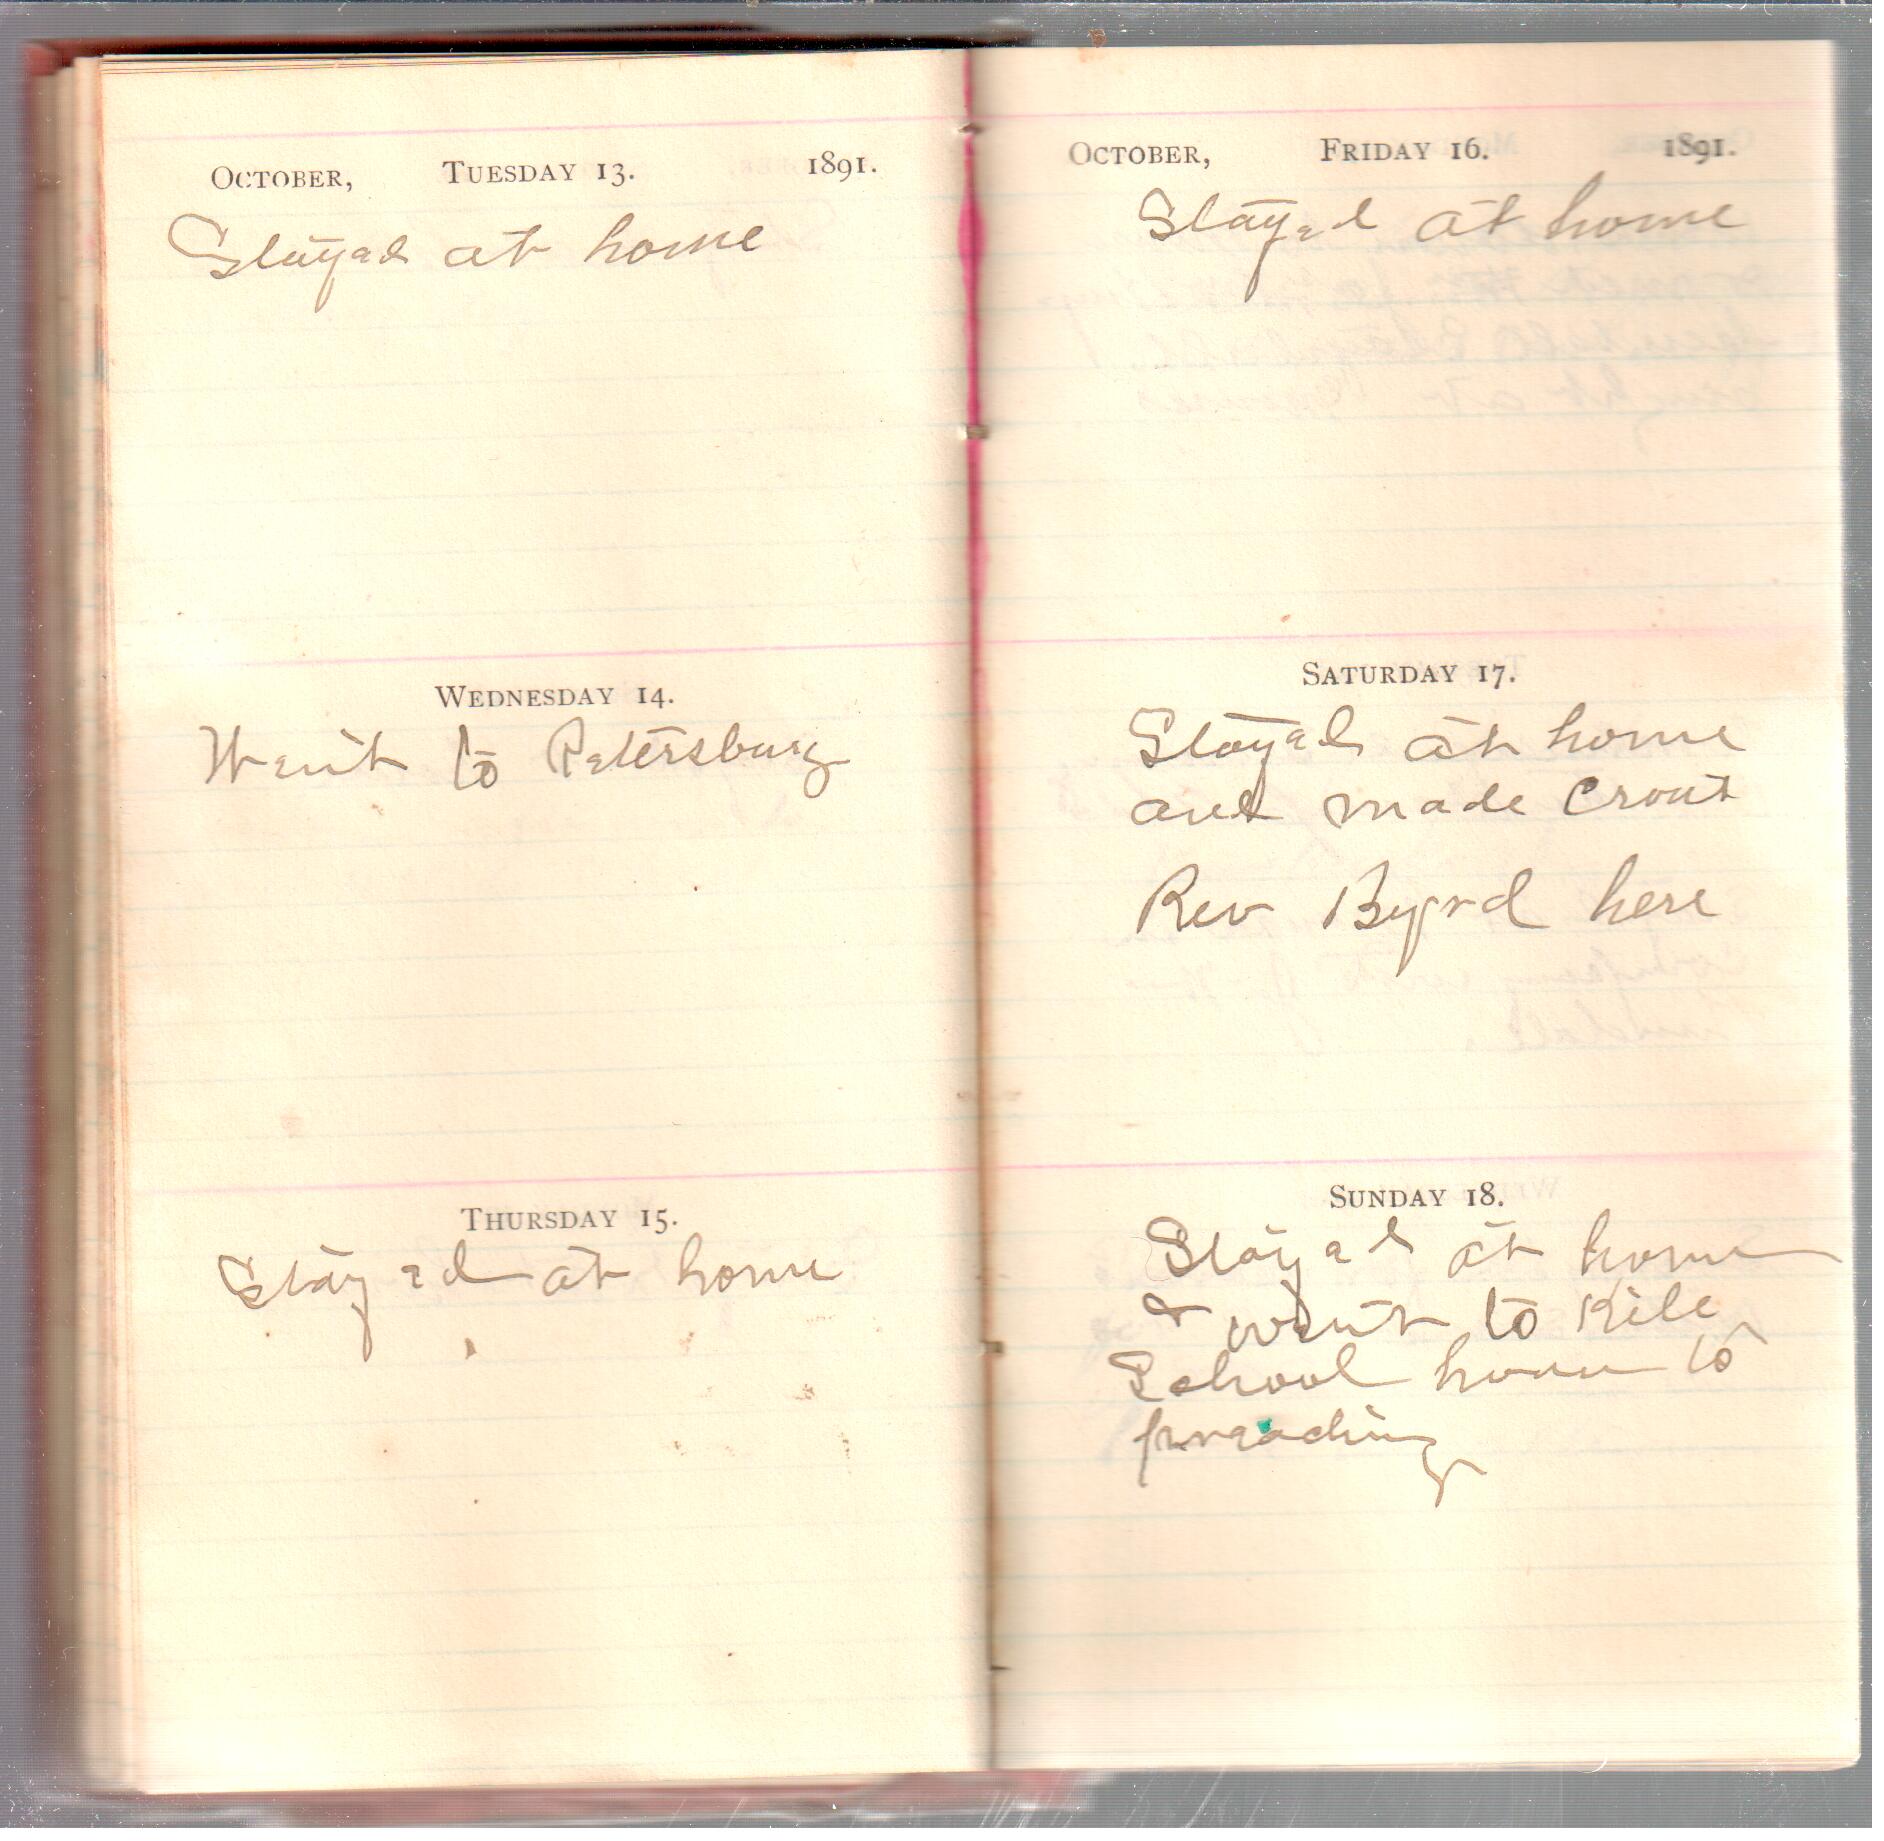 OCTOBER, TUESDAY 13. 1891.
Stayed at home
WEDNESDAY 14.
Went to Petersburg
THURSDAY 15.
Stayed at home
OCTOBER, FRIDAY 16. 1891.
Stayed at home
SATURDAY 17.
Stayed at home
and made Crout
Rev Byrd here
SUNDAY 18.
Stayed at home
& went to Kile
School house to
preaching